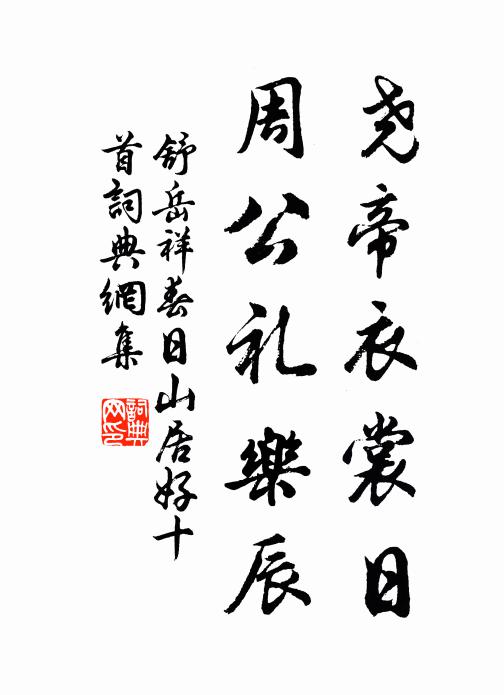 尧帝衣裳日
周公礼樂辰
舒岳祥春日山居好十
首詞典網集
詞典网印